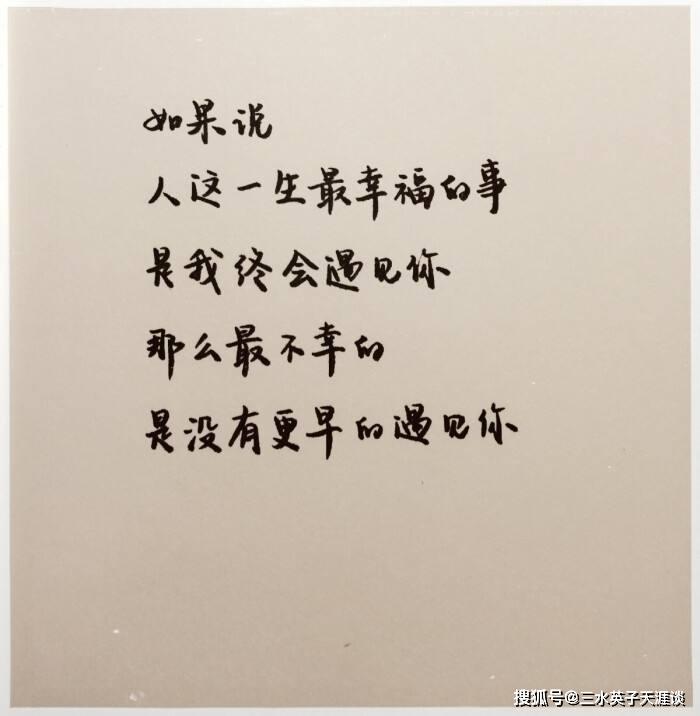 如果说
人这一生最幸福的事
是我终会遇见你
那么最不幸的
是没有更早的遇见你
搜狐号@三水英子天涯谈